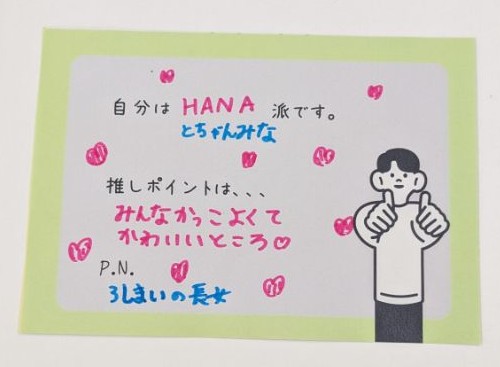 自分は HANA 派です。
とちゃんみな
推しポイントは、、、
みんなかっこよくて
かわいいところ♡
P.N.
3しまいの長女